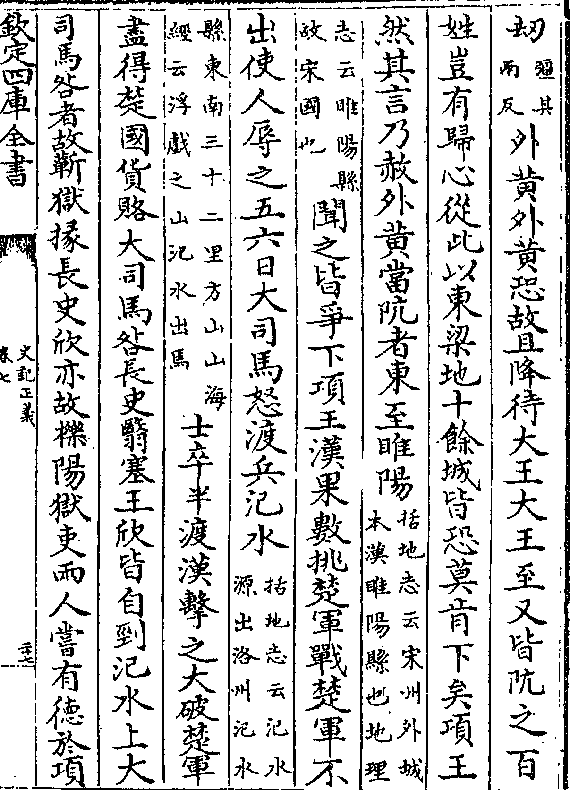 刼
彊其
兩反
外黄外黄恐故且降待大王大王至又皆阬之百
姓豈有歸心從此以東梁地十餘城皆恐莫肯下矣項王
然其言乃赦外黄當阬者東至睢陽
括地志云宋州外城
本漢睢陽縣也地理
志云睢陽縣
故宋國也
聞之皆爭下項王漢果數挑楚軍戰楚軍不
出使人辱之五六日大司馬怒渡兵汜水
括地志云汜水
源出洛州汜水
縣東南三十二里方山山海
經云浮戲之山汜水出焉
士卒半渡漢擊之大破楚軍
盡得楚國貨賂大司馬咎長史翳塞王欣皆自剄汜水上大
司馬咎者故蘄獄掾長史欣亦故櫟陽獄吏兩人嘗有德於項
欽定四庫全書
史記正義
卷七
三十七